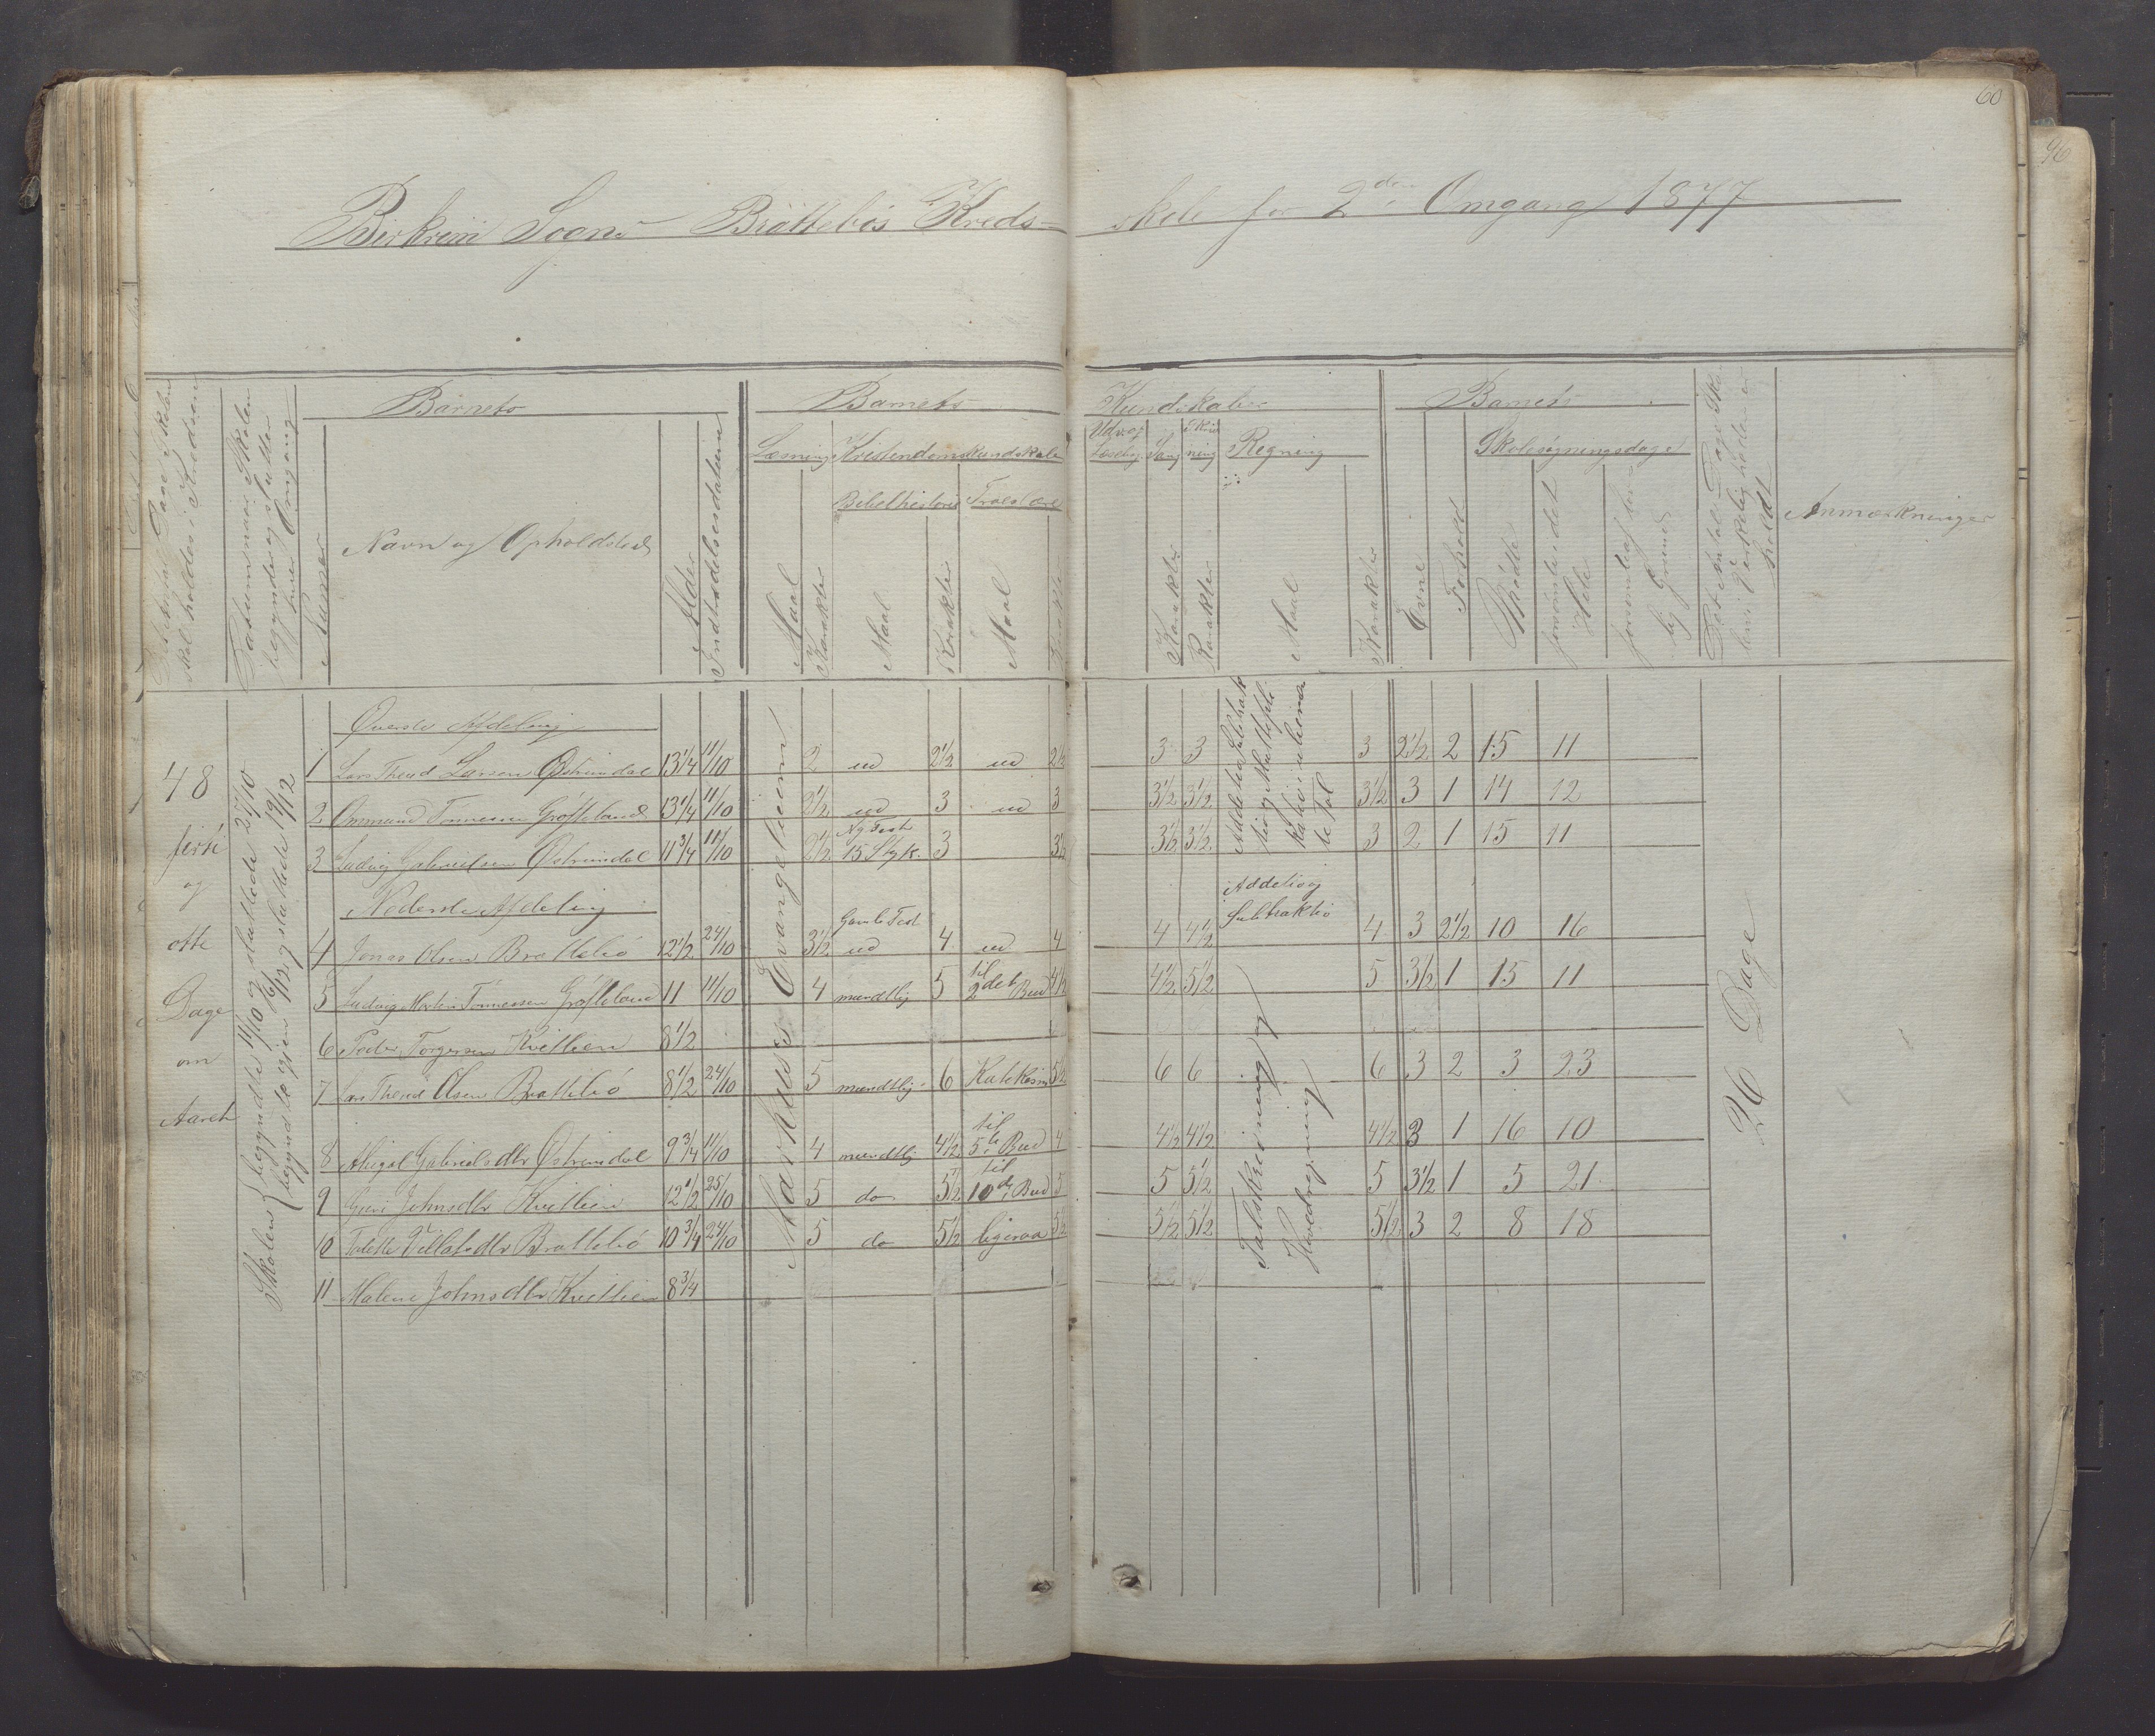 60
96
Birkrem Sogns Bråttebös Kreds-
skole for 2den Omgang 1877
Barnets
Barnets
Kundskaber
Barnets
Læsning Kristendomskundskab
Bibelhistorie Troeslære
Udv. af Læsebog Sang Skrivning Regning
Skolesøgningsdage
Det Antal Dage Skolen skal holdes i Kredsen
Datum naar Skolen begynder og slutter hver Omgang
Numer
Navn og Opholdssted
Alder
Indtrædelsesdatum
Maal
Karakter
Maal
Karakter
Maal
Karakter
Karakter
Karakter
Maal
Karakter
Evne
Forhold
Mødte
forsømte i det Hele
forsømte af lovlig Grund
Det Antal Dage Skolen i Virkelighed er holdt
Anmærkninger
48 firti og otte Dage om Aaret
Skolen begyndte 11/10 og sluttede 27/10
begyndte igjen og sluttede 19/12
Markus's Evangelium
Øverste Afdeling
1 Lars Theod Larsen Østrimdal 13 1/4 11/10 2 ud 2 1/2 ud 2 1/2 3 3 3 2 1/2 2 15 11
2 Ommund Tønnessen Gröfteland 13 1/4 11/10 2 1/2 ud 3 ud 3 3 1/2 3 1/2 3 1/2 3 1 14 12
3 Ludvig Gabrielsen Østrimdal 11 3/4 11/10 2 1/2 Ny Test 15 Styk. 3 3 1/2 3 1/2 3 1/2 3 2 1 15 11
Nederste Afdeling
4 Jonas Olsen Bråttebö 12 1/2 24/10 3 1/2 Gamle Test ud 4 ud 4 4 4 1/2 Additio og Subtraktio 4 3 2 1/2 10 16
5 Ludvig Martin Tönnessen Gröfteland 11 11/10 4 mundtlig 5 til 2det Bud 4 1/2 4 1/2 5 1/2 5 3 1/2 1 15 11
6 Peder Torgersen Kvitlien 8 1/2
7 Lars Theod Olsen Bråttebö 8 1/2 24/10 5 mundtlig 6 Katekism 5 1/2 6 6 6 3 2 3 23
8 Abigal Gabrielsdtr Østrimdal 9 3/4 11/10 4 mundtlig 4 1/2 til 5te Bud 4 4 1/2 4 1/2 4 1/2 3 1 16 10
9 Guri Johnsdtr Kvitlien 12 1/2 25/10 5 do 5 1/2 til 10de Bud 5 5 5 1/2 5 3 1/2 1 5 21
10 Tolette Villatsdtr Bråttebö 10 3/4 24/10 5 do 5 1/2 ligesaa 5 1/2 5 1/2 5 1/2 5 1/2 3 2 8 18
11 Malene Johnsdtr Kvitlien 8 3/4
Talskrivning og Hovedregning
26 Dage